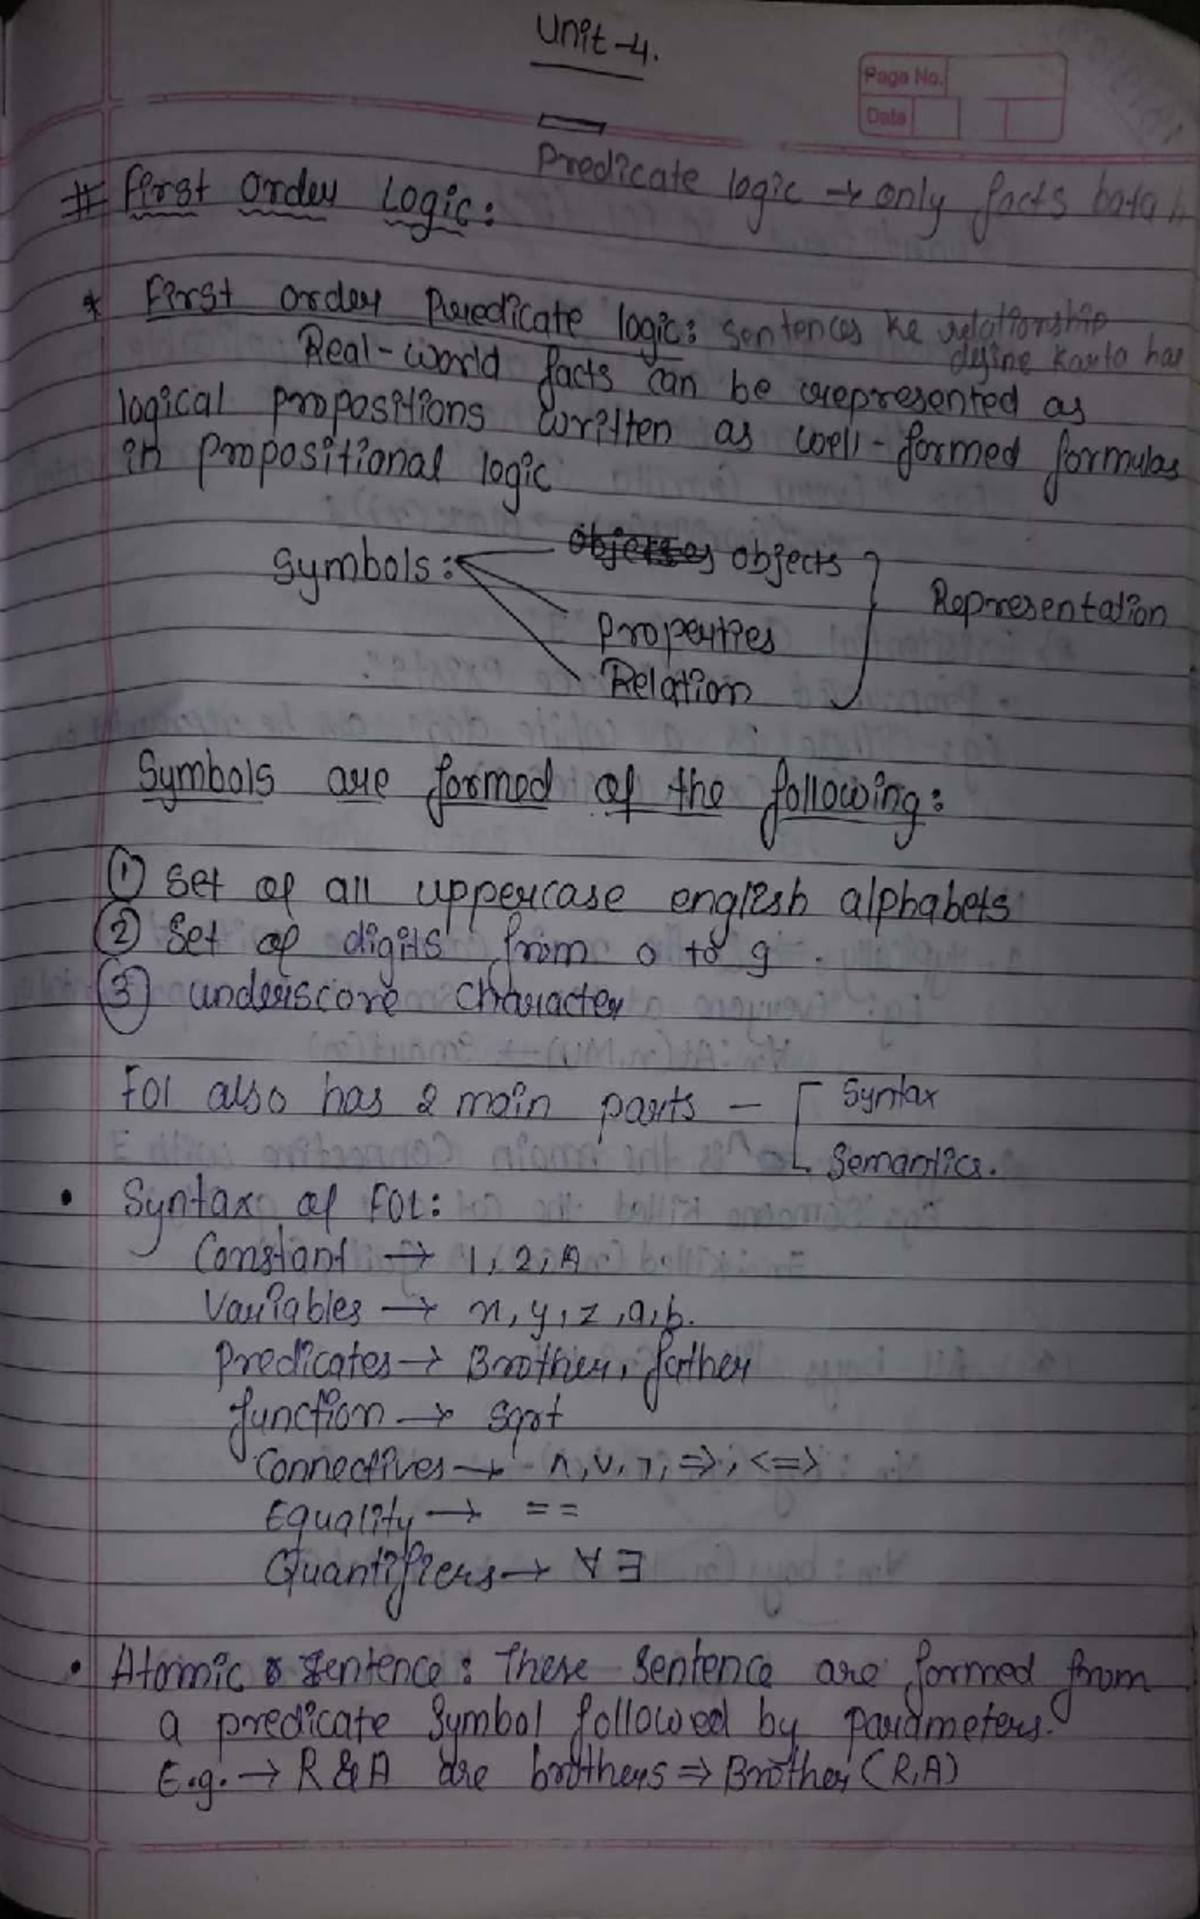 Unit-4.
Page No.
Date
Predicate logic → only facts bata
# First Order Logic:
* First order Predicate logic: sentences ke relationship
define karta hai
Real-world facts can be represented as
logical propositions written as well-formed formulas
in propositional logic
Symbols: objects
Properties
Relation
Representation
Symbols are formed of the following:
① Set of all uppercase english alphabets
② Set of digits from 0 to 9.
③ underscore character
FOL also has 2 main parts - Syntax
Semantics.
• Syntax of FOL:
Constant → 1, 2, A
Variables → x, y, z, a, b.
Predicates → Brother, father
function → sqrt
Connectives → ∧, ∨, ¬, ⇒, <=>
Equality → ==
Quantifiers → ∀ ∃
• Atomic Sentence: These sentence are formed from
a predicate symbol followed by parameters.
E.g. → R & A are brothers ⇒ Brother (R, A)